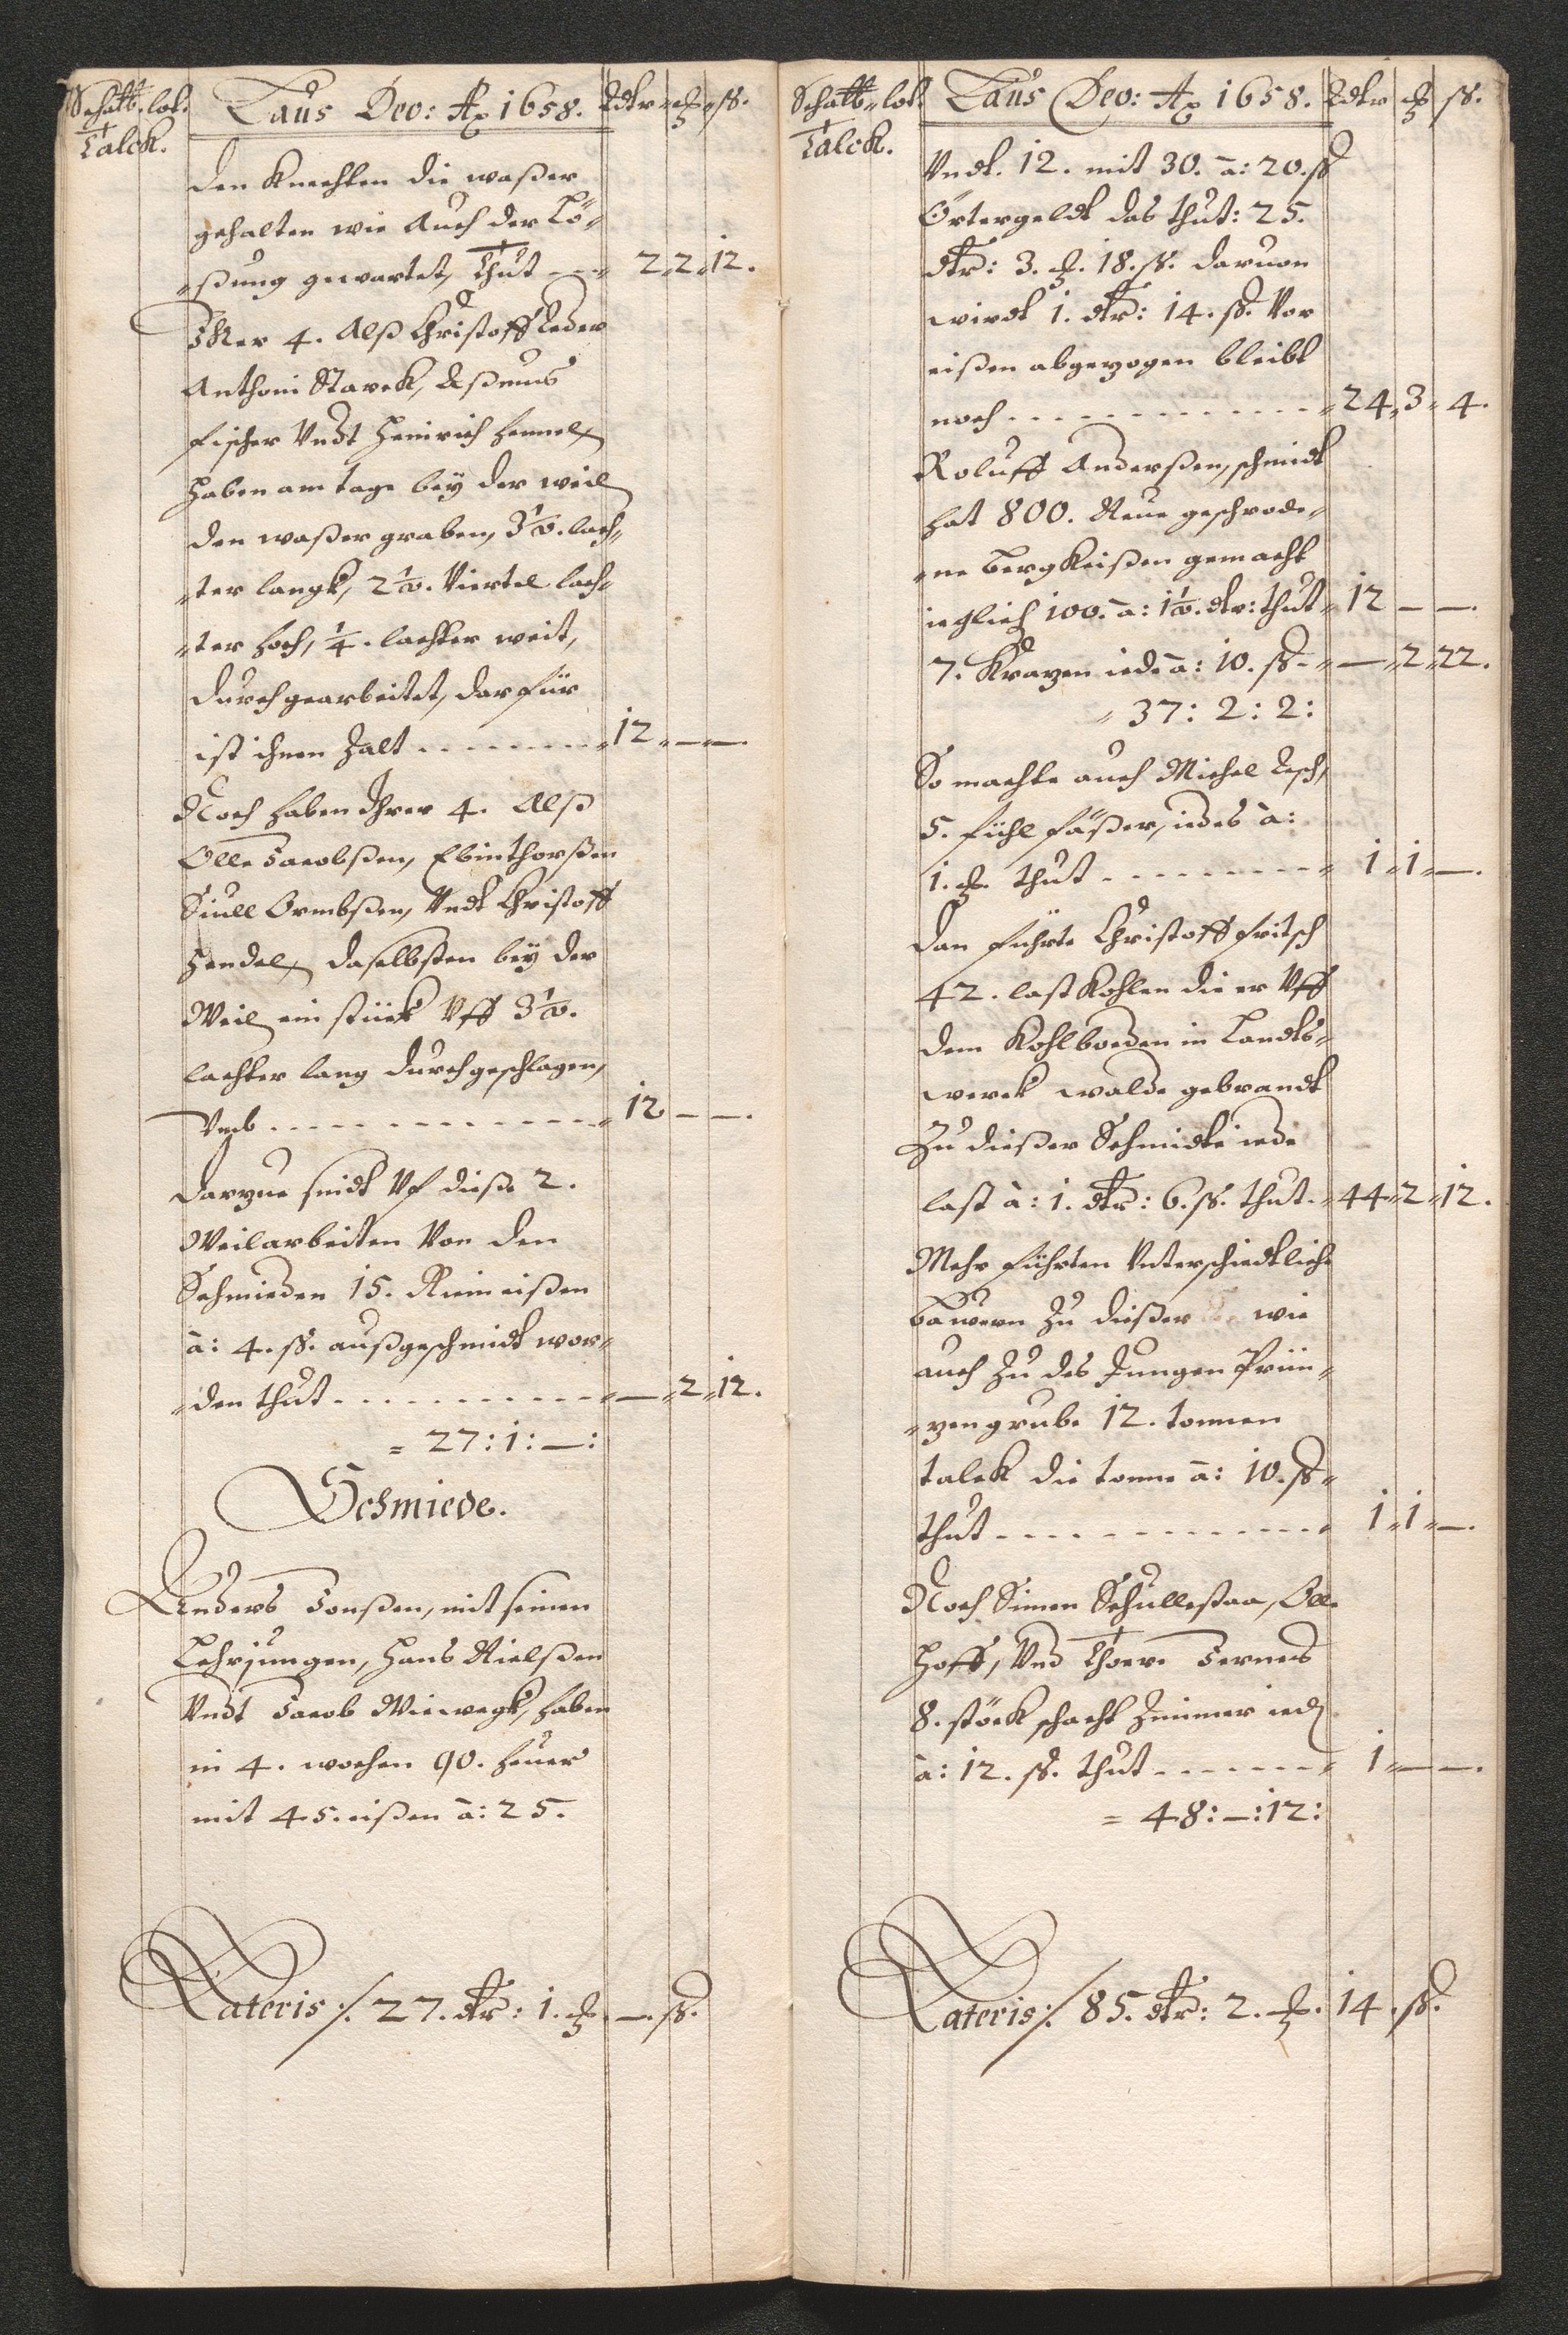 Schatb. loß. Laus Deo: Ao 1658. Rdlr ₰ ß.
Talck.
den Knechten die waßer
gehalten wie Auch der Lö=
=ßung gewartet, Thut — 2 2 12.
Ihrer 4. Alß Christoff Leder
Anthoni Starck, Aßmus
Fischer Vndt Heinrich Hemel
haben am tage beÿ der weil
den waßer graben, 3 1/2. lach=
=ter langk, 2 1/2. Viertel lach=
=ter hoch, 1/4. lachter weit,
durchgearbeitet, darfür
ist ihnen Zalt - - - - 12 — —.
Noch haben Ihrer 4. Alß
Olle Jacobßen, Ebinthorßen
Siull Ormbßen, Vndt Christoff
Hendel, daselbsten beÿ der
Weil ein stück Vff 3 1/2.
lachter lang durchgeschlagen,
Vmb - - - - 12 — —.
Darzue sindt Vf diese 2.
Weilarbeiten Von den
Schmieden 15. Rieneißen
à: 4. ß. außgeschmidt wor=
=den thut - - - - — 2 12.
= 27: 1: —:
Schmiede.
Anders Jonßen, mit seinen
Lehrjungen, Hans Nielßen
Vndt Jacob Wiewegk, haben
in 4. wochen 90. heuer
mit 45. eißen à: 25.
Lateris /: 27. dlr: 1. ₰. —. ß.
Schatb. loß. Laus Deo: Ao 1658. Rdlr ₰ ß.
Talck.
Vndt. 12. mit 30. à: 20. ß
Örtergeldt das thut: 25.
dlr: 3. ₰. 18. ß. daruon
wirdt 1. dlr: 14. ß. Vor
eißen abgezogen bleibt
noch - - - - 24 3 4.
Roluff Anderßen, schmidt
hat 800. Neue geschrode=
=ne bergkeißen gemacht
ieglich 100. à: 1 1/2. dlr: thut 12 — —.
7. Krazen iede à: 10. ß — 2 22.
= 37: 2: 2:
So machte auch Michel Lesch,
5. fühl fäßer, iedes à:
1. ₰. thut - - - - 1 1 —.
Dan führte Christoff Fritsch
42. last Kohlen die er Vff
dem Kohlboeden in Landts=
werck walde gebrandt
Zu dießer Schmidte iede
last à: 1. dlr: 6. ß. thut. 44 2 12.
Mehr führten Vnterschiedtliche
bawern Zu dießer wie
auch Zu des Jungen Prin=
=zengrube 12. tonnen
talck die tonne à: 10. ß=
thut - - - - 1 1 —.
Noch Simen Schulleßaa, Olle
Hoff, Vnd Thoer Jerneß
8. stöck schacht Zimmer ied
à: 12. ß. thut - - - - 1 — —.
= 48: —: 12:
Lateris /: 85. dlr: 2. ₰. 14. ß.